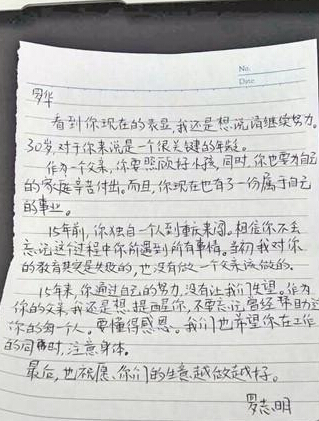 No.
Date
罗华
看到你现在的表显，我还是想说请继续努力。
30岁，对于你来说是一个很关键的年龄。
作为一个父亲，你要照顾好小孩，同时，你也要为自己
的家庭辛苦付出。而且，你现在也有了一份属于自己
的事业。
15年前，你独自一个人到重庆来闯。相信你不会
忘记这个过程中你所遇到所有事情。当初我对你
的教育其实是失败的，也没有做一个父亲该做的。
15年来，你通过自己的努力，没有让我们失望。作为
你的父亲，我还是想提醒你，不要忘记曾经帮助过
你的每个人。要懂得感恩。我们也希望你在工作
的同时，注意身体。
最后，也祝愿，你们的生意越做越好。
罗志明